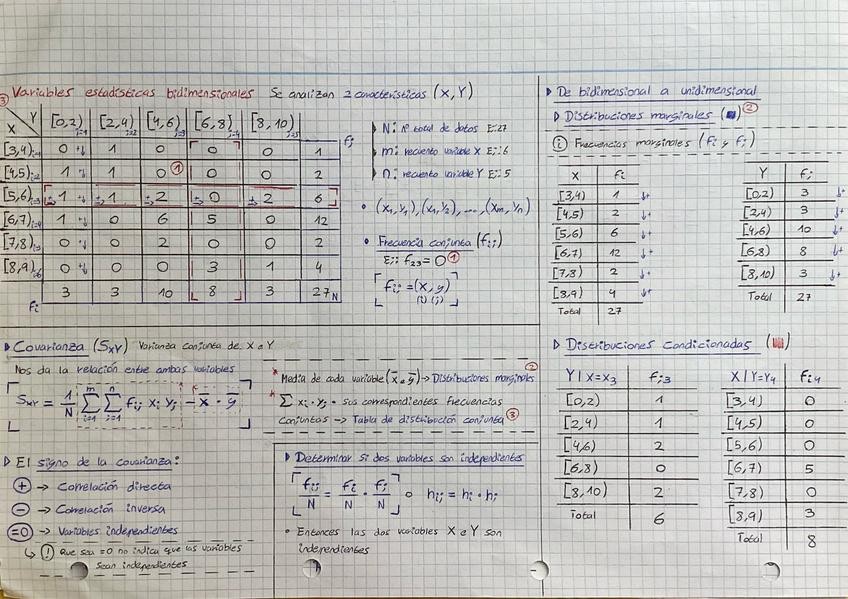 ③ Variables estadísticas bidimensionales Se analizan 2 características (X,Y)
X Y [0,2) j=1 [2,4) j=2 [4,6) j=3 [6,8) j=4 [8,10) j=5 fj
[3,4) i=1 0 1 0 0 0 1
[4,5) i=2 1 1 0 ① 0 0 2
[5,6) i=3 1 1 2 0 2 6
[6,7) i=4 1 0 6 5 0 12
[7,8) i=5 0 0 2 0 0 2
[8,9) i=6 0 0 0 3 1 4
fi 3 3 10 8 3 27 N
N: nº total de datos Ej:27
m: recuento variable X Ej:6
n: recuento variable Y Ej:5
• (x₁,y₁),(x₁,y₂), ..., (xm,yn)
• Frecuencia conjunta (fij)
Ej: f₂₃ = 0 ①
fij = (x,y)
(i) (j)
De bidimensional a unidimensional
Distribuciones marginales ②
(i) Frecuencias marginales (fi y fj)
X fi
[3,4) 1 ↓+
[4,5) 2 ↓+
[5,6) 6 ↓+
[6,7) 12 ↓+
[7,8) 2 ↓+
[8,9) 4 ↓+
Total 27
Y fj
[0,2) 3 ↓+
[2,4) 3 ↓+
[4,6) 10 ↓+
[6,8) 8 ↓+
[8,10) 3 ↓+
Total 27
Covarianza (Sxy) Varianza conjunta de X e Y
Nos da la relación entre ambas variables
Sxy = 1/N Σ(i=1, m) Σ(j=1, n) fij xi yj - x̄ · ȳ
* Media de cada variable (x̄ e ȳ) → Distribuciones marginales ②
* Σ xi · yj · sus correspondientes frecuencias
conjuntas → Tabla de distribución conjunta ③
El signo de la covarianza:
(+) → Correlación directa
(-) → Correlación inversa
(=0) → Variables independientes
↳ (!) Que sea =0 no indica que las variables
sean independientes
Determinar si dos variables son independientes
fij/N = fi/N · fj/N o hij = hi · hj
• Entonces las dos variables X e Y son
independientes
Distribuciones condicionadas
Y | X=X₃ fj3
[0,2) 1
[2,4) 1
[4,6) 2
[6,8) 0
[8,10) 2
Total 6
X | Y=Y₄ fi4
[3,4) 0
[4,5) 0
[5,6) 0
[6,7) 5
[7,8) 0
[8,9) 3
Total 8